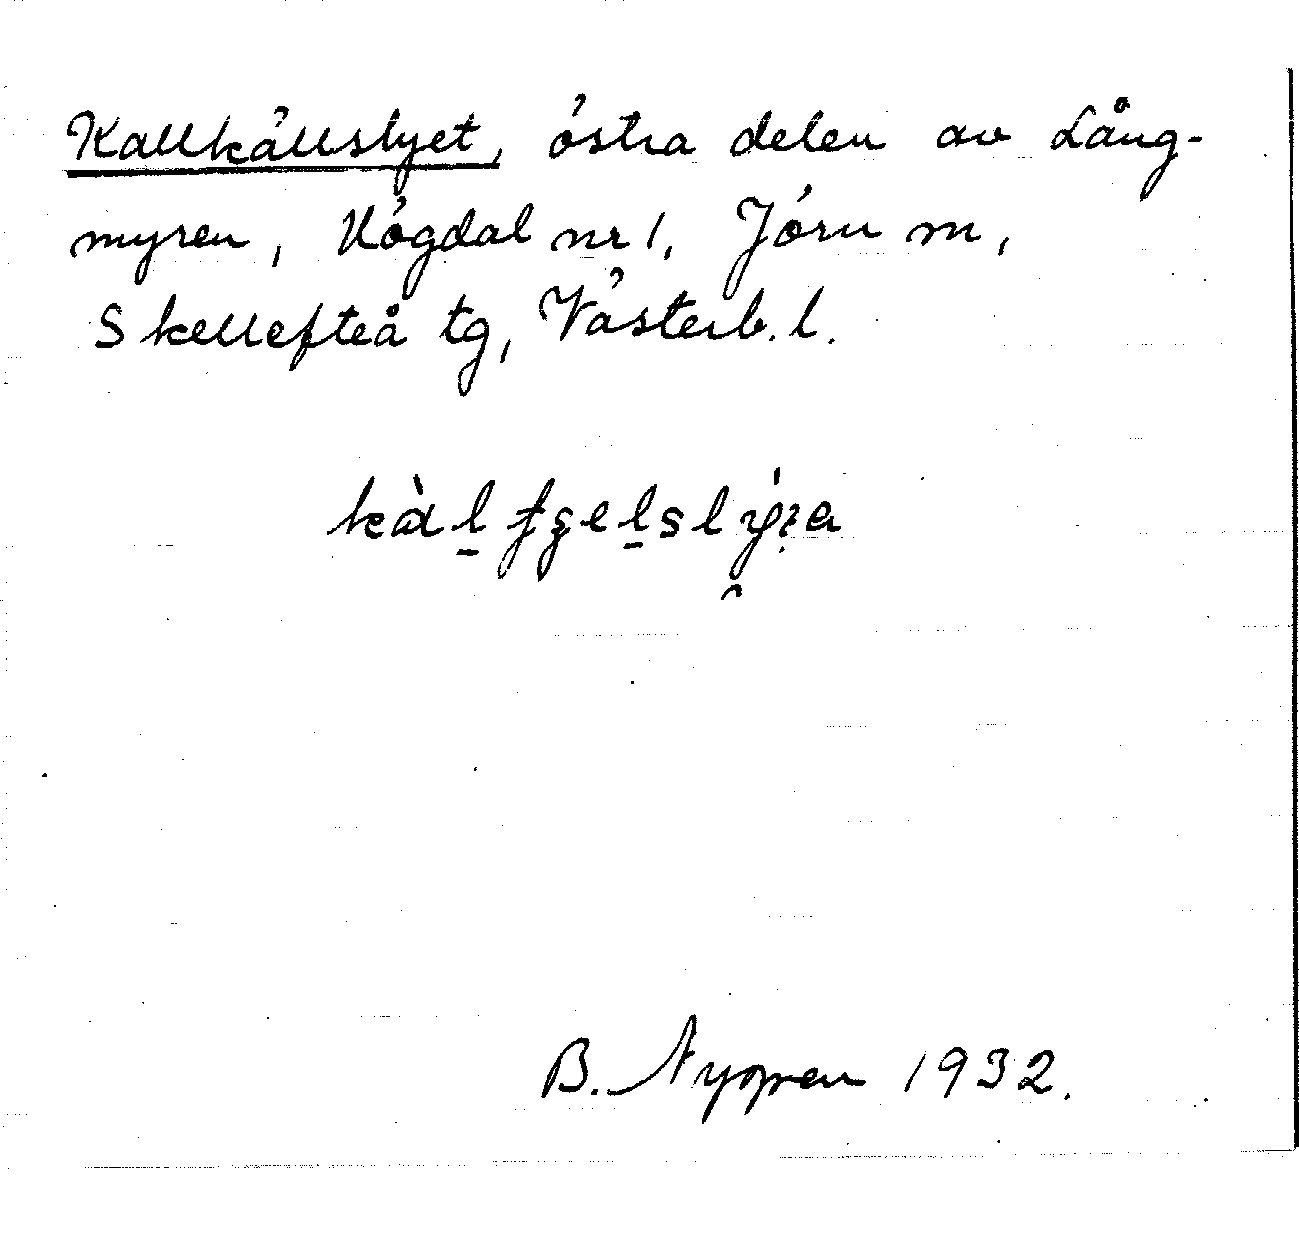 Kallkällslyet, östra delen av Lång-
myren, Högdal nr 1, Jörn m,
Skellefteå tg, Västerb. l.
B. Nygren 1932.